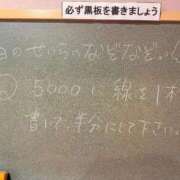 必ず黒板を書きましょう
日のせいらのなどなどぃく
② 5000に線を1本
書いて、半分にして下さい。